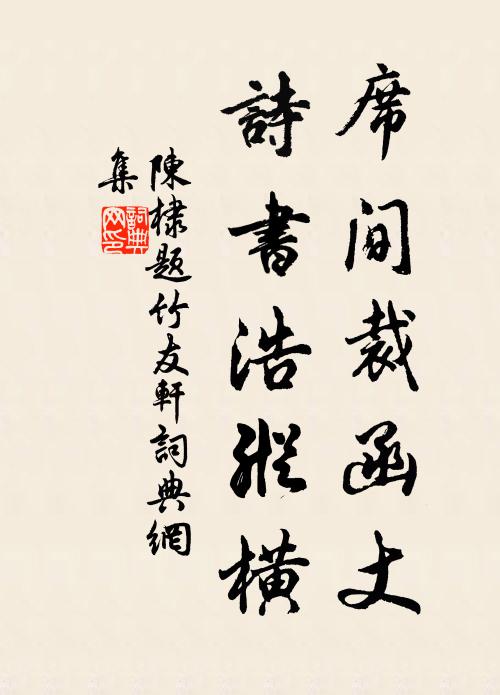 席間裁函丈
詩書浩縱橫
陳棣題竹友軒詞典網
集
詞典网印